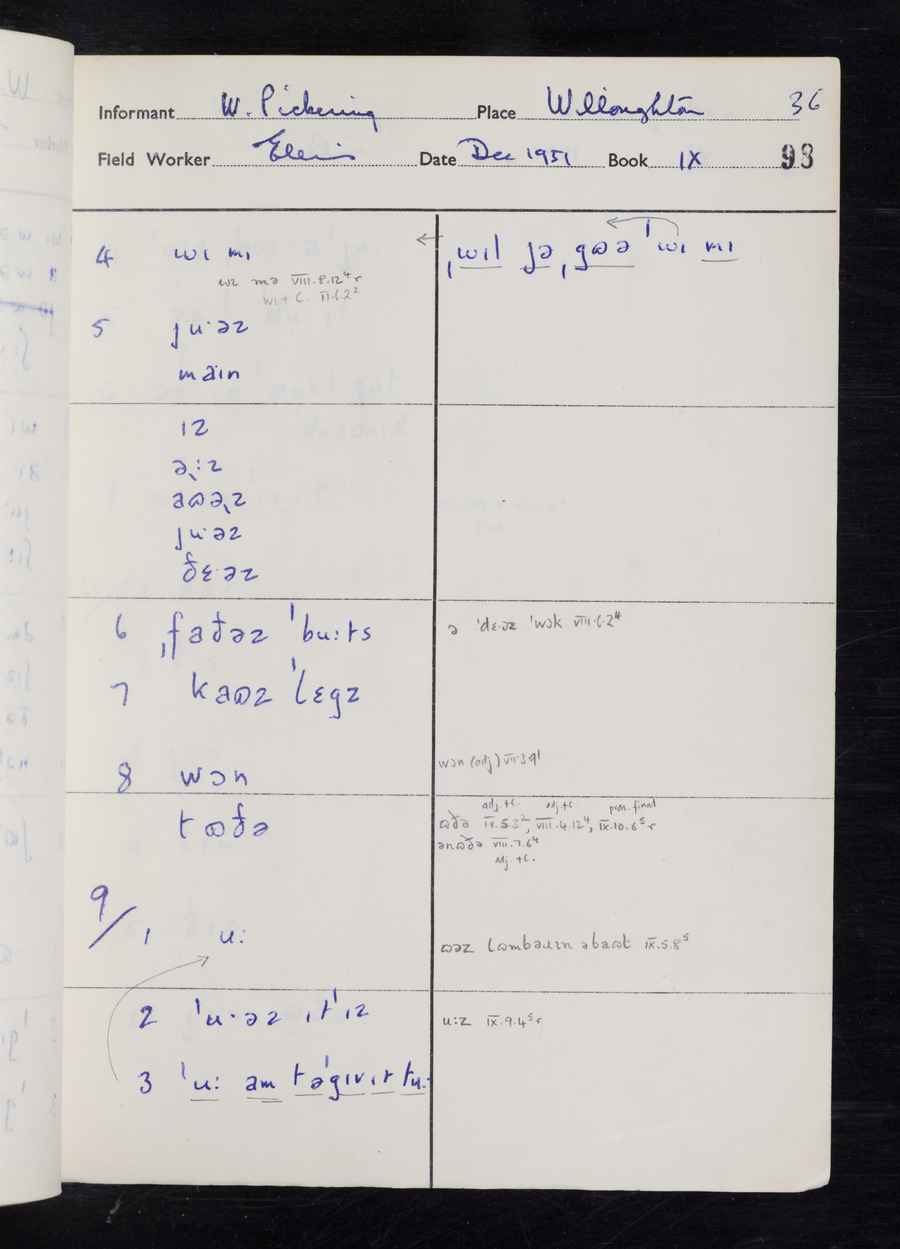 Informant W. Pickering Place Willoughton 36
Field Worker Ellis Date Dec 1951 Book IX 93
4 wɪ mɪ ← ˌwɪl jə ˌgɷə ˈwɪ mɪ
wɪ mə VIII.8.12⁴ r
wɪ + C. VI.6.2²
5 ju·əz
maɪn
ɪz
əʵ:z
aɷəʵz
ju·əz
ðɛ·əz
6 ˌfaðəz ˈbu:ts ə ˈdɛ·əz ˈwɔk VIII.6.2⁴
7 kaɷz ˈlɛgz
8 wɔn wɔn (adj) VII.3.9¹
tɷðə adj. +C. adj +C. pron. final
ɷðə IV.5.3², VIII.4.12⁴, IX.10.6⁵ r
ənɷðə VIII.7.6⁴
adj. +C.
9/1 u: ɷəz lɷmbəuɪn əbaɷt IX.5.8⁵
2 ˈu·əz ˌɪt ˈɪz u:z IX.9.4⁵ r
3 ˈu: am t əˈgɪv ɪt tu: